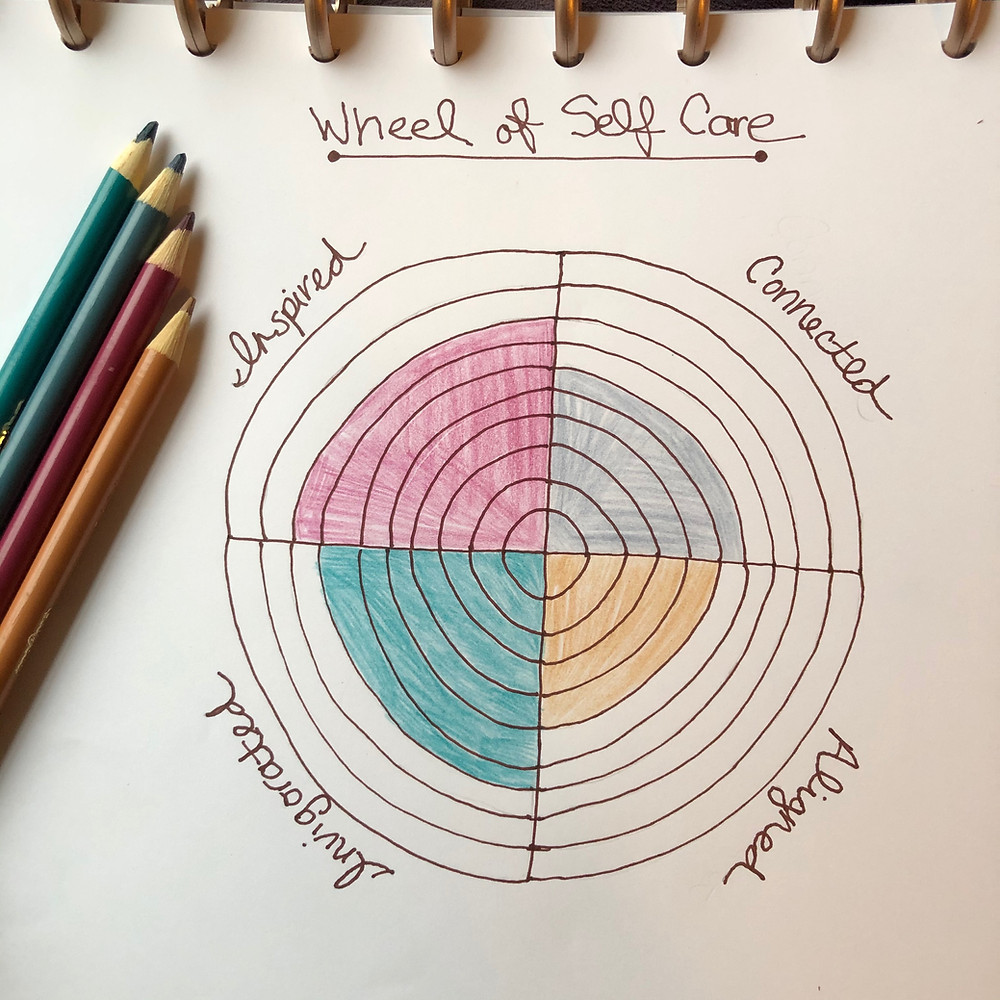 Wheel of Self Care
Inspired
Connected
Invigorated
Aligned